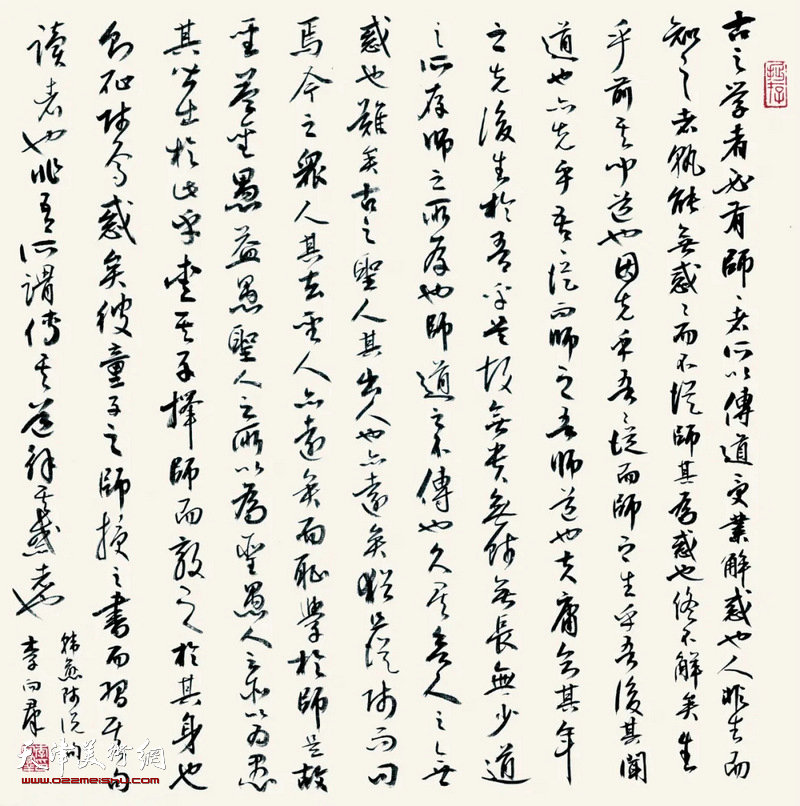 古之学者必有師〻者所以傳道受業解惑也人非生而
知之者孰能無惑〻而不從師其為惑也終不解矣生
乎前其聞道也因先乎吾〻從而師之生乎吾後其聞
道也亦先乎吾從而師之吾師道也夫庸知其年
之先後生於吾乎是故無貴無賤無長無少道
之所存師之所存也師道之不傳也久矣欲人之無
惑也難矣古之聖人其出人也亦遠矣猶且從師而問
焉今之眾人其去聖人亦遠矣而恥學於師是故
聖益聖愚益愚聖人之所以為聖愚人之所以為愚
其皆出於此乎愛其子擇師而教之於其身也
則恥師焉惑矣彼童子之師授之書而習其句
讀者也非吾所謂傳其道解其惑者也
韓愈師說句
李向群
天津美術網
www.022meishu.com